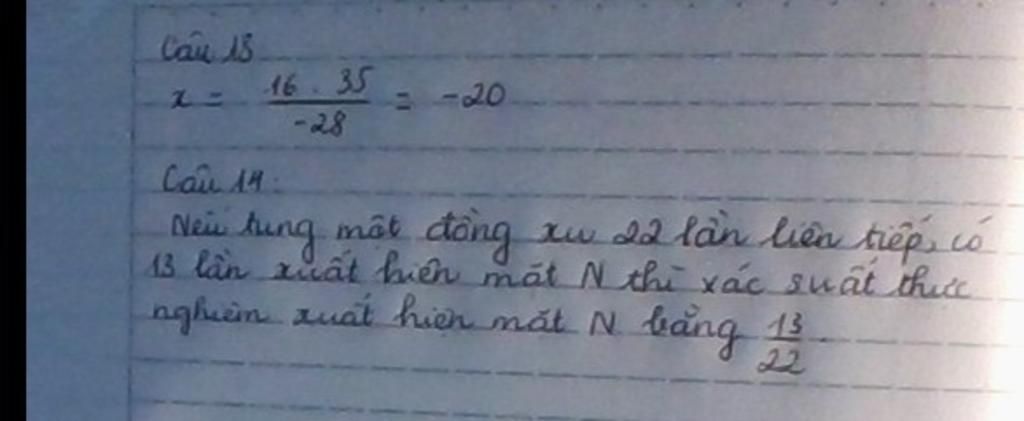 Câu 13
x = \frac{16 . 35}{-28} = -20
Câu 14:
Nếu tung một đồng xu 22 lần liên tiếp, có
13 lần xuất hiện mặt N thì xác suất thực
nghiệm xuất hiện mặt N bằng \frac{13}{22}